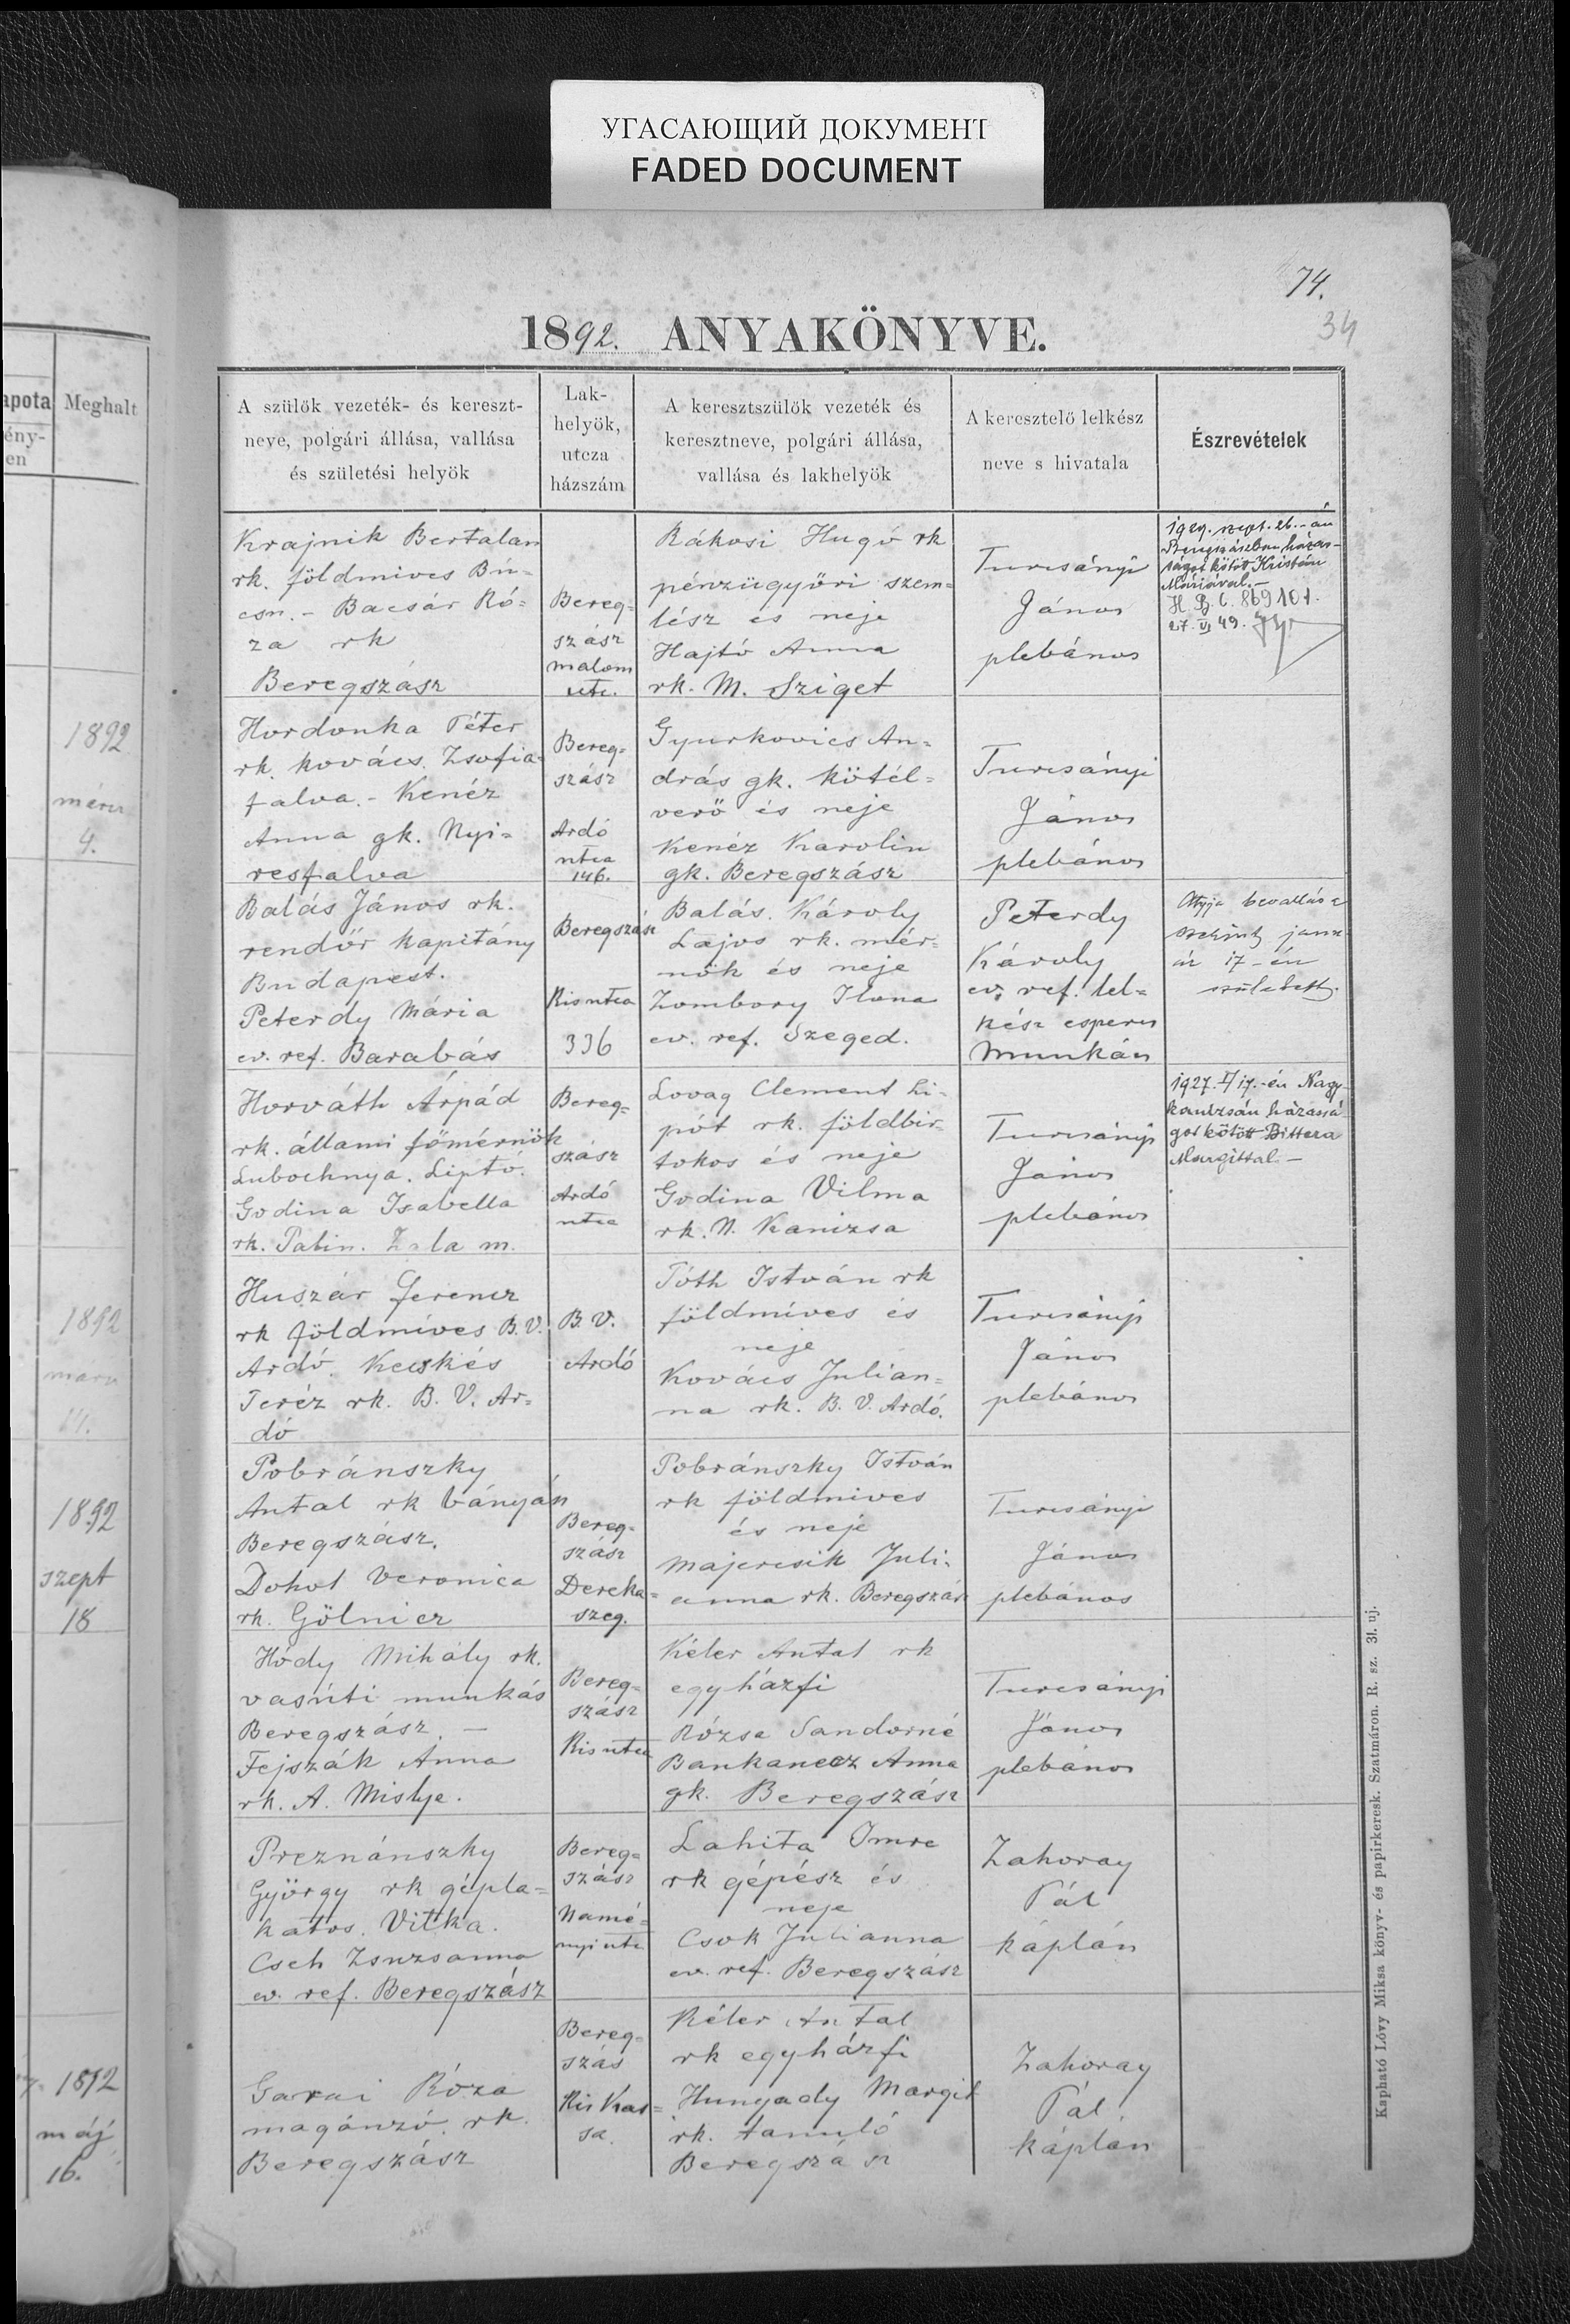 УГАСАЮЩИЙ ДОКУМЕНТ
FADED DOCUMENT
74.
34
1892. ANYAKÖNYVE.
apota
Meghalt
ény-
en
A szülök vezeték- és kereszt-
neve, polgári állása, vallása
és születési helyök
Lak-
helyök,
utcza
házszám
A keresztszülök vezeték és
keresztneve, polgári állása,
vallása és lakhelyök
A keresztelő lelkész
neve s hivatala
Észrevételek
Krajnik Bertalan
rk. földmives
csn. - Bacsár Ró=
za rk
Beregszász
Bereg=
szász
malom
utc.
Rákosi Hugó rk
pénzügyőri szem=
lész és neje
Hajtó Anna
rk. M. Sziget
Turcsányi
János
plebános
1929. szept. 26.-án
Beregszászban házas-
ságot kötött Kristán
Máriával.-
869101.
27. VI 49.
1892
márcz
4.
Hordonka Péter
rk. kovács. Zsofia=
falva. - Kenéz
Anna gk. Nyi=
resfalva
Bereg=
szász
Ardó
utca
146.
Gyurkovics An=
drás gk. kötél=
verő és neje
Kenéz Karolin
gk. Beregszász
Turcsányi
János
plebános
Balás János rk.
rendőr kapitány
Budapest.
Peterdy Mária
ev. ref. Barabás
Beregszász
Kis utca
336
Balás. Károly
Lajos rk. mér=
nök és neje
Zombory Ilona
ev. ref. Szeged.
Peterdy
Károly
ev. ref. lel=
kész esperes
Munkács
Atyja bevallása
szerint janu
ár 17-én
született.
Horváth Árpád
rk. állami főmérnök
Lubochnya. Liptó.
Godina Isabella
rk. Palin. Zala m.
Bereg=
szász
Ardó
utca
Lovag Clement Li-
pót rk. földbir=
tokos és neje
Godina Vilma
rk. N. Kanizsa
Turcsányi
János
plebános
1927. I/17.-én Nagy-
kanizsán házassá-
got kötött Bittera
Margittal.-
1892
marc
Huszár Ferencz
rk földmíves B.V.
Ardó. Kecskés
Teréz rk. B. V. Ar=
dó
B. V.
Ardó
Tóth István rk
földmíves és
neje
Kovács Julián=
na rk. B. V. Ardó.
Turcsányi
János
plebános
1892
szept
18
Pobránszky
Antal rk bányán
Beregszász.
Dohot Veronica
rk. Gölnicz
Bereg=
szász
Dereka=
szeg.
Pobránszky István
rk földmives
és neje
Majercsik Juli=
anna rk. Beregszász
Turcsányi
János
plebános
Hódy Mihály rk.
vasúti munkás
Beregszász. -
Fejszák Anna
rk. A. Mislye.
Bereg=
szász
Kis utca
Kéler Antal rk
egyházfi
Rózsa Sandorné
Bankanecz Anna
gk. Beregszász
Turcsányi
János
plebános
Preznánszky
György rk gépla=
katos. Vitka.
Cseh Zsuzsanna
ev. ref. Beregszász
Bereg=
szász
Namé=
nyi utc
Lahita Imre
rk gépész és
neje
Csok Julianna
ev. ref. Beregszász
Zahoray
Pál
káplán
1892
máj
16.
Garai Róza
magánzó. rk.
Beregszász
Bereg=
szás
Kis Kas=
sa.
Kéler Antal
rk egyházfi
Hunyady Margit
rk. tanuló
Beregszász
Zahoray
Pál
káplán
Kapható Lővy Miksa könyv- és papirkeresk. Szatmáron. R. sz. 31. uj.